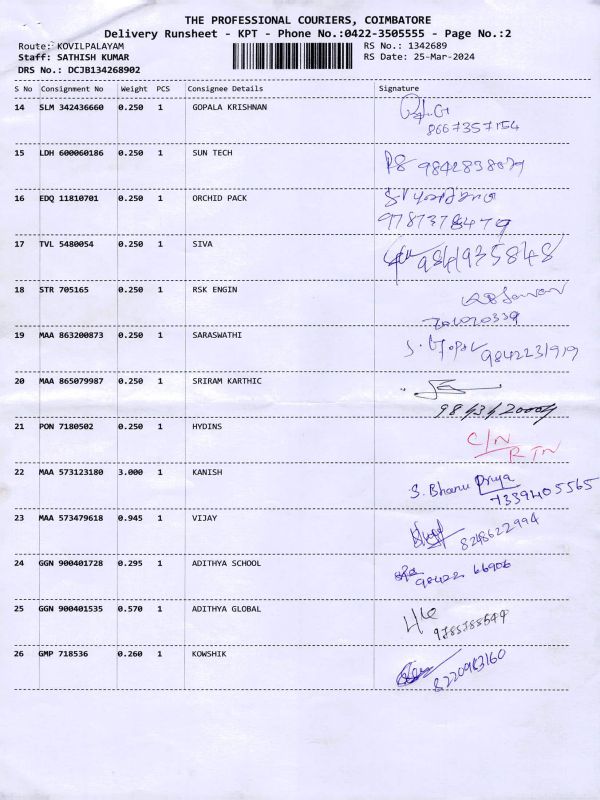 THE PROFESSIONAL COURIERS, COIMBATORE
Delivery Runsheet - KPT - Phone No.:0422-3505555 - Page No.:2
Route: KOVILPALAYAM RS No.: 1342689
Staff: SATHISH KUMAR RS Date: 25-Mar-2024
DRS No.: DCJB134268902
S No Consignment No Weight PCS Consignee Details Signature
14 SLM 342436660 0.250 1 GOPALA KRISHNAN
8667357154
15 LDH 600060186 0.250 1 SUN TECH
16 EDQ 11810701 0.250 1 ORCHID PACK
9787378479
17 TVL 5480054 0.250 1 SIVA
18 STR 705165 0.250 1 RSK ENGIN
19 MAA 863200873 0.250 1 SARASWATHI
9842231919
20 MAA 865079987 0.250 1 SRIRAM KARTHIC
21 PON 7180502 0.250 1 HYDINS
C/N
RTN
22 MAA 573123180 3.000 1 KANISH
S. Bhanu Priya
7339405565
23 MAA 573479618 0.945 1 VIJAY
8248622994
24 GGN 900401728 0.295 1 ADITHYA SCHOOL
98422 66906
25 GGN 900401535 0.570 1 ADITHYA GLOBAL
26 GMP 718536 0.260 1 KOWSHIK
8220983160